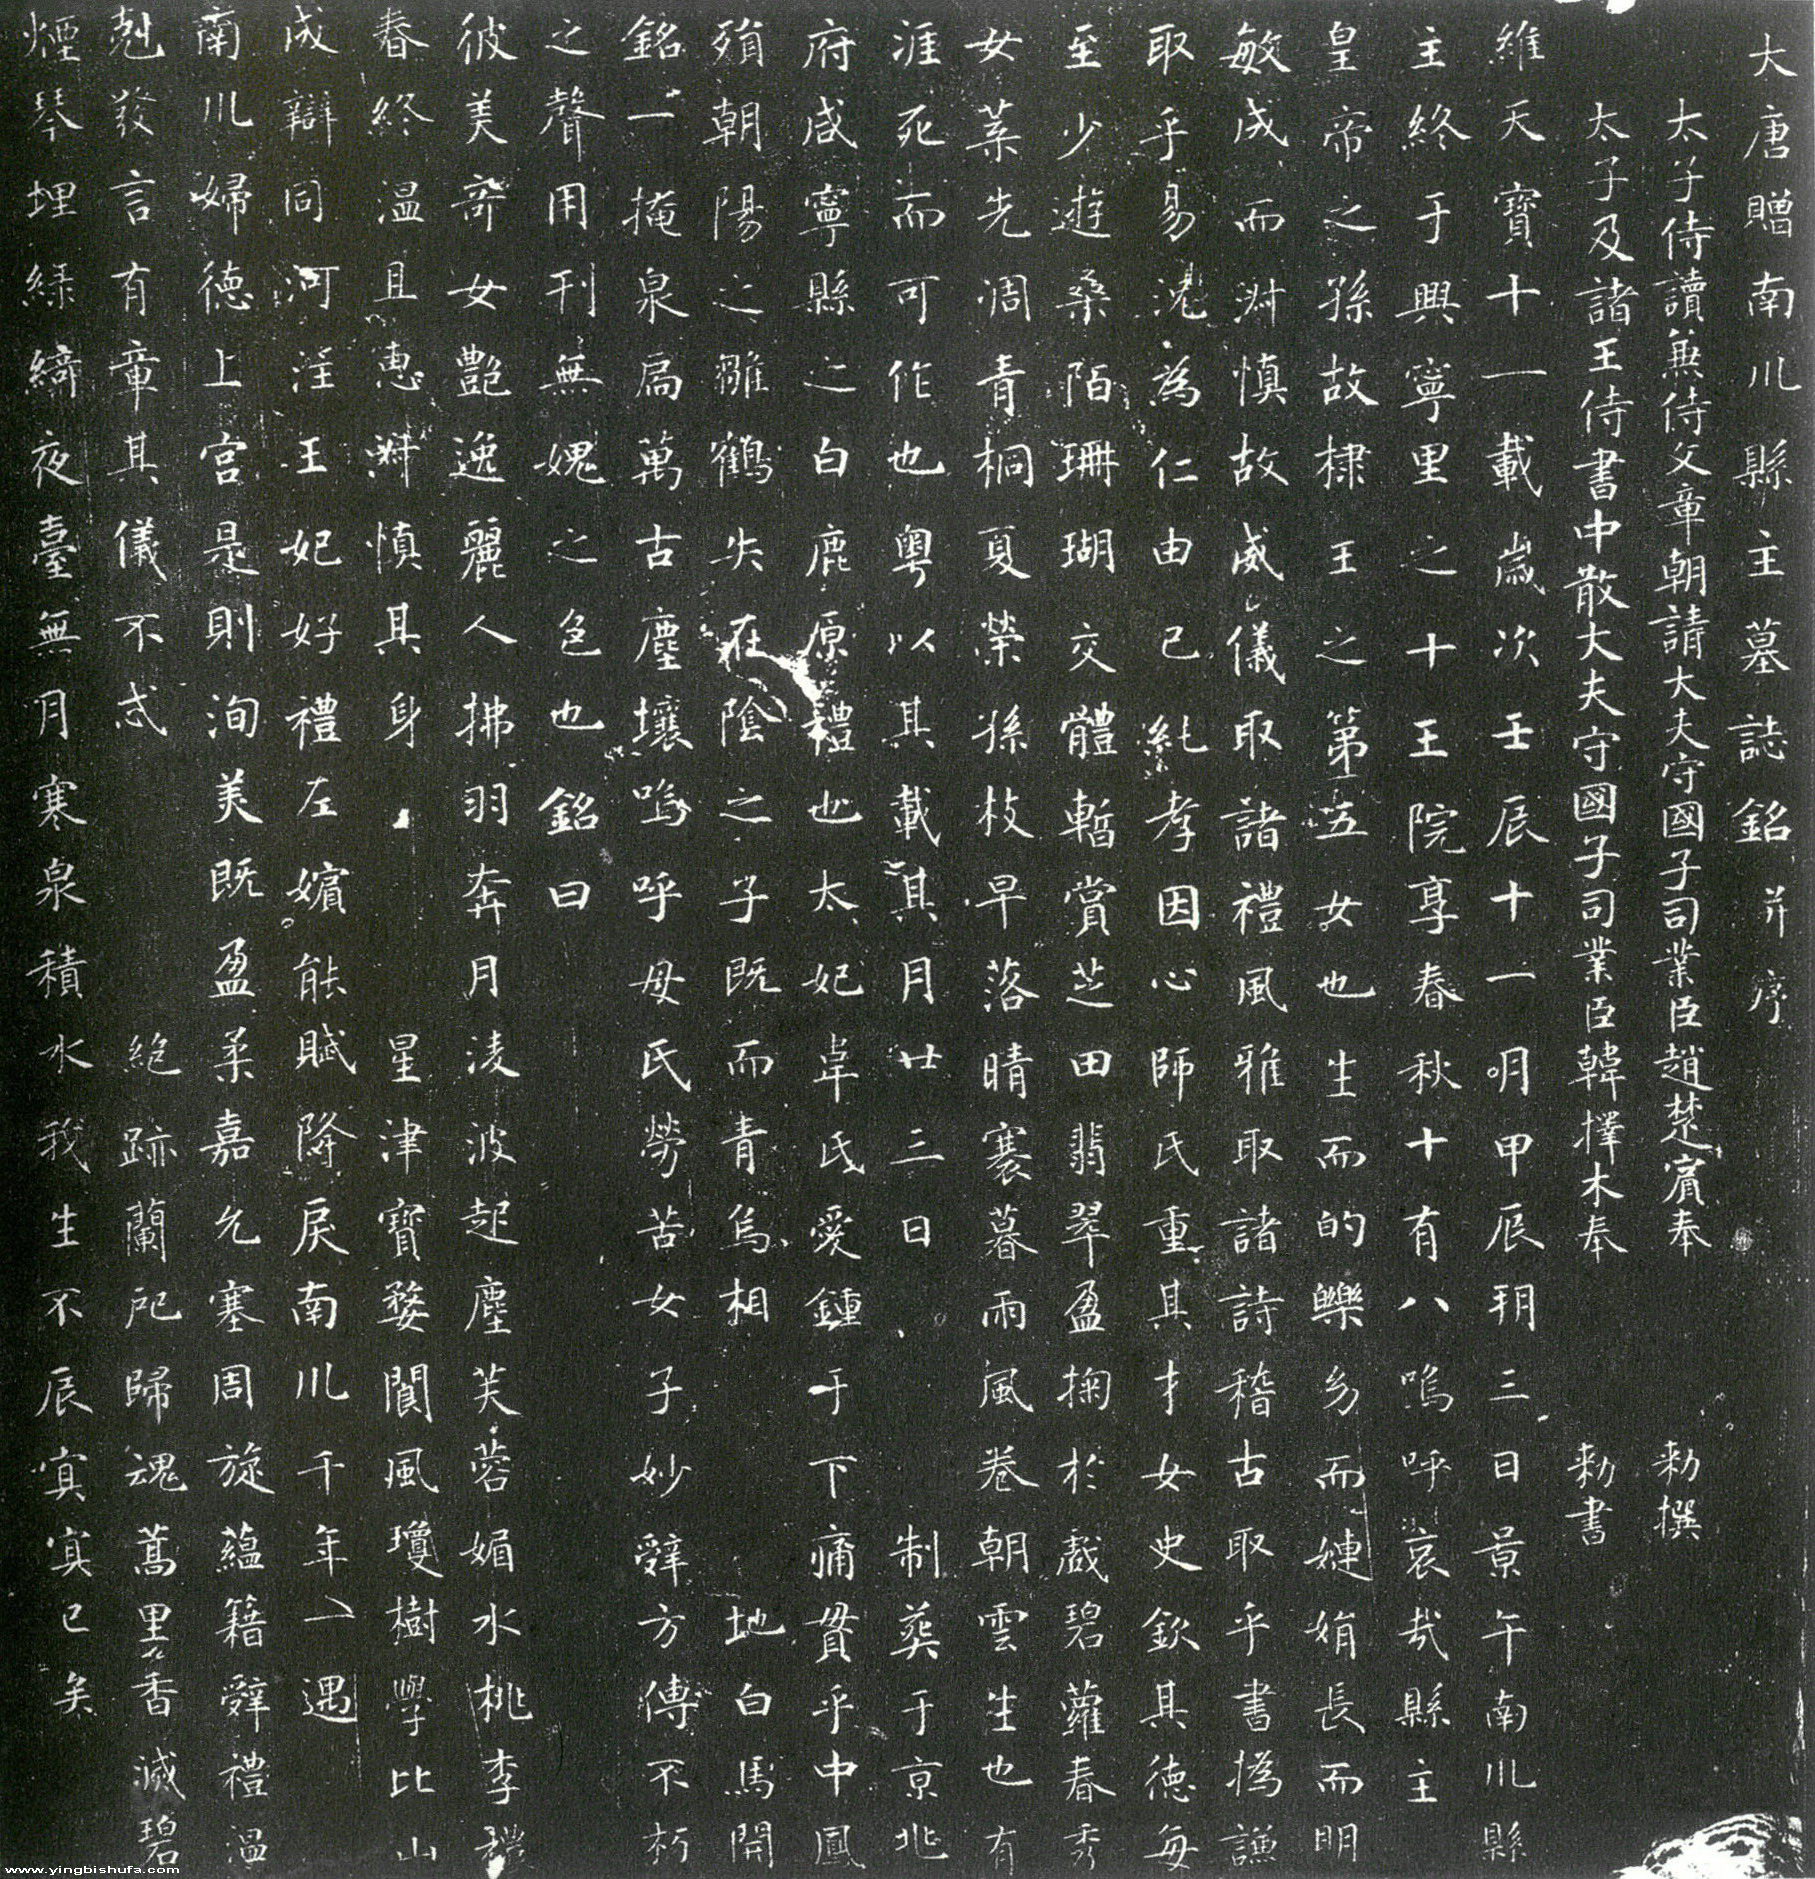 大唐贈南川縣主墓誌銘并序
太子侍讀兼侍文章朝請大夫守國子司業臣趙楚賓奉 勅撰
太子及諸王侍書中散大夫守國子司業臣韓擇木奉 勅書
維天寶十一載歲次壬辰十一月甲辰朔三日景午南川縣
主終于興寧里之十王院享春秋十有八嗚呼哀哉縣主
皇帝之孫故棣王之第五女也生而的皪幼而嬋娟長而明
敏成而淑慎故威儀取諸禮風雅取諸詩稽古取乎書撝謙
取乎易洸為仁由己純孝因心師氏重其才女史欽其德每
至少遊桑陌珊瑚交體暫賞芝田翡翠盈掬於戲碧蘿春秀
女菜先凋青桐夏榮孫枝早落晴褰暮雨風卷朝雲生也有
涯死而可作也粵以其載其月廿三日 制葬于京兆
府咸寧縣之白鹿原禮也太妃卓氏愛鍾于下痛貫乎中鳳
殞朝陽之雛鶴失在陰之子既而青烏相 地白馬開
銘一掩泉扃萬古塵壤嗚呼母氏勞苦女子妙辭方傳不朽
之聲用刊無媿之色也銘曰
彼美奇女艷逸麗人拂羽奔月淩波起塵芙蓉媚水桃李穠
春終溫且惠淑慎其身 星津寶婺閬風瓊樹學比山
成辯同河注王妃好禮左嬪能賦降戾南川千年一遇
南川婦德上宮是則洵美既盈柔嘉允塞周旋蘊籍辭禮溫
尅發言有章其儀不忒 絕跡蘭戺歸魂蒿里香滅碧
煙琴埋綠綺夜臺無月寒泉積水我生不辰寘寘已矣
www.yingbishufa.com